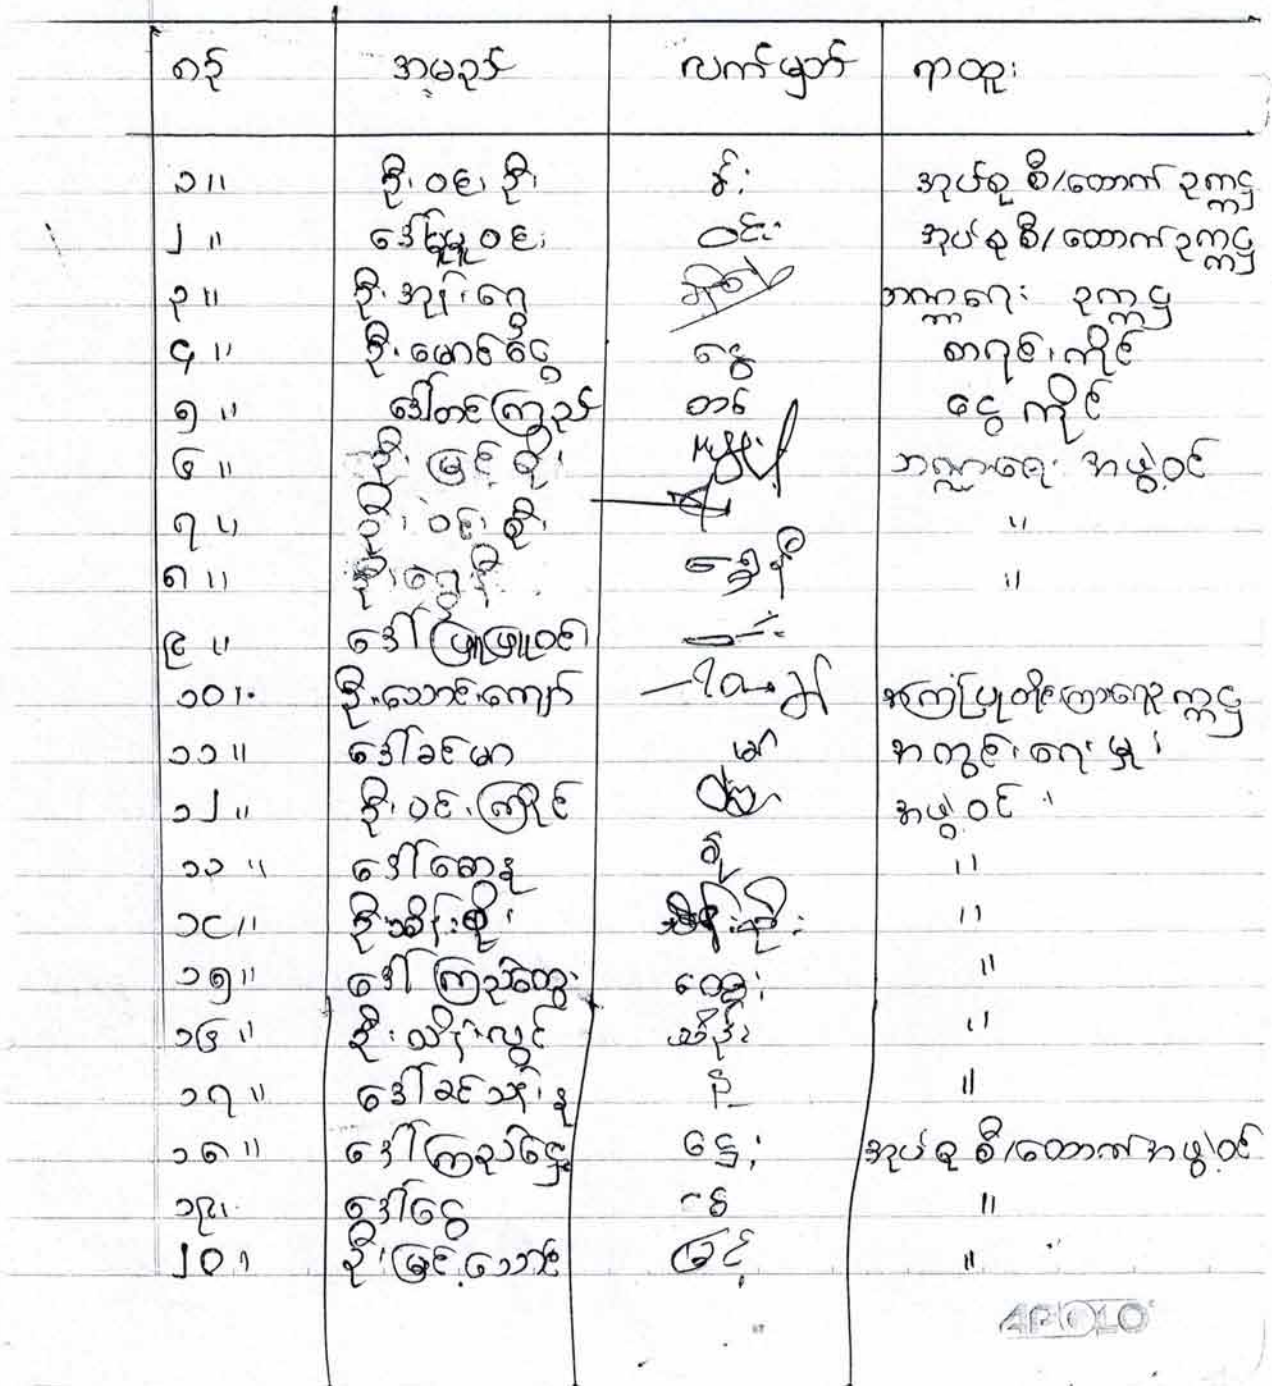 စဉ် အမည် လက်မှတ် ရာထူး
၁။ ဦးဝင်းဦး အုပ်စု စီ/ထောက် ဥက္ကဋ္ဌ
၂။ ဒေါ်မူမူဝင်း ဝင်း အုပ်စု စီ/ထောက် ဥက္ကဋ္ဌ
၃။ ဦးအုန်းရွှေ ဘဏ္ဍာရေး ဥက္ကဋ္ဌ
၄။ ဦးမောင်ငွေ ငွေ စာရင်းကိုင်
၅။ ဒေါ်တင်ကြည် တင် ငွေကိုင်
၆။ ဦးမြင့်စိုး ဘဏ္ဍာရေး အဖွဲ့ဝင်
၇။ ဦးဝင်းစိုး ။
၈။ ဦးရွှေနီ ရွှေနီ ။
၉။ ဒေါ်ဖြူဖြူဝင်း
၁၀။ ဦးသောင်းကျော် အကြံပြုတိုင်ကြားရေးဥက္ကဋ္ဌ
၁၁။ ဒေါ်ခင်မာ မာ အတွင်းရေးမှူး
၁၂။ ဦးဝင်းကြိုင် အဖွဲ့ဝင်
၁၃။ ဒေါ်စောနု နု ။
၁၄။ ဦးသိန်းစိုး သိန်းစိုး ။
၁၅။ ဒေါ်ကြည်ထွေး ထွေး ။
၁၆။ ဦးသိန်းလွင် သိန်း ။
၁၇။ ဒေါ်ခင်သန်းနု ။
၁၈။ ဒေါ်ကြည်ဌွေး ဌွေး အုပ်စု စီ/ထောက်အဖွဲ့ဝင်
၁၉။ ဒေါ်ငွေ ။
၂၀။ ဦးမြင့်သောင်း မြင့် ။
APOLO